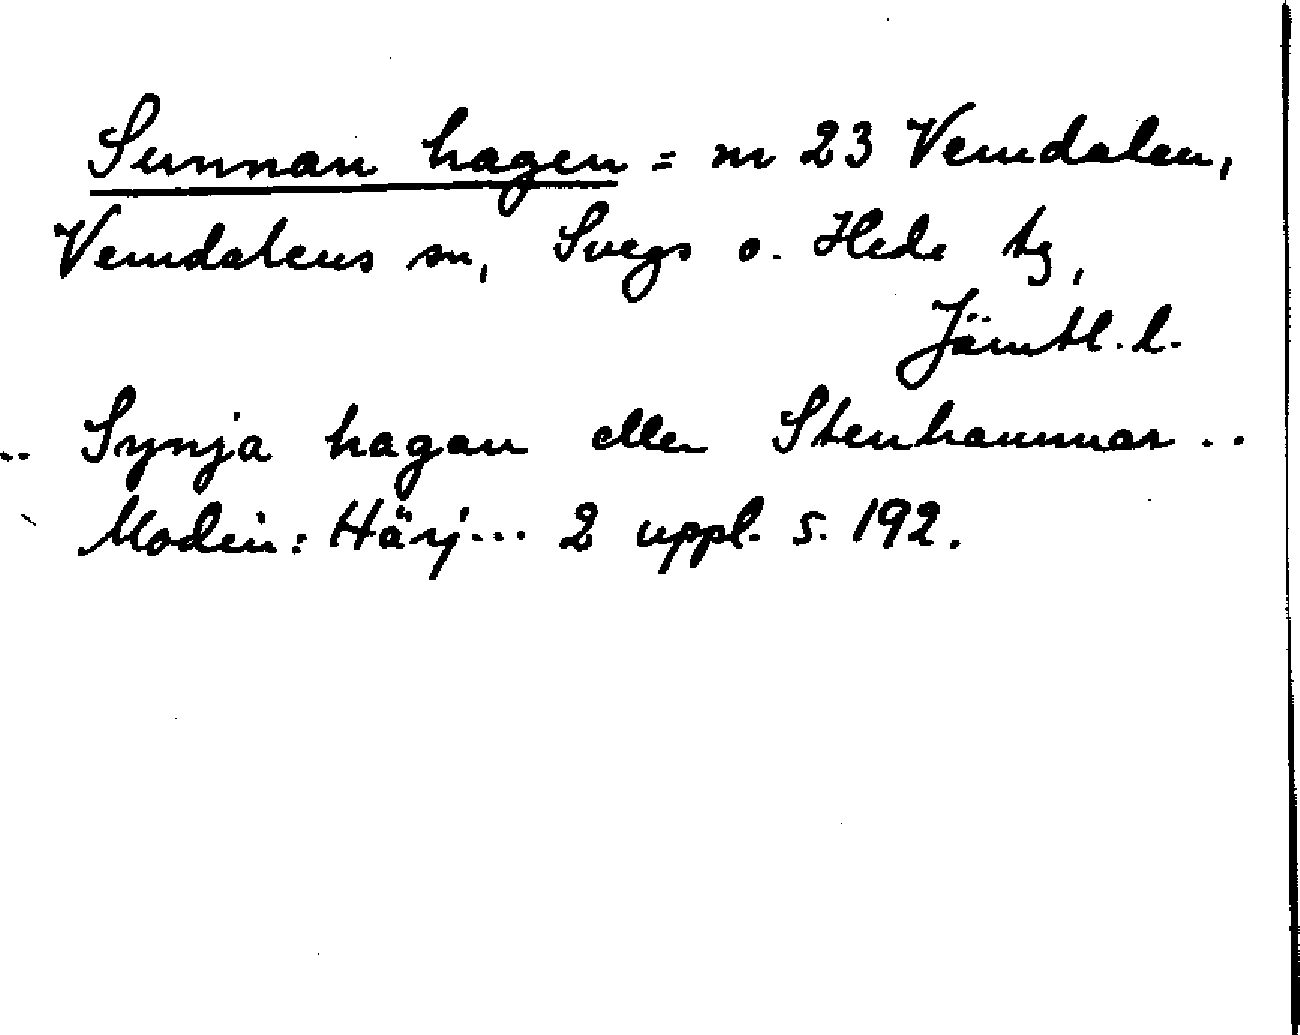 Sunnan hagen = nr 23 Vemdalen,
Vemdalens sn, Svegs o. Hede tg,
Jämtl. l.
.. Synja hagan eller Stenhammar ..
Modin: Härj... 2 uppl. s. 192.